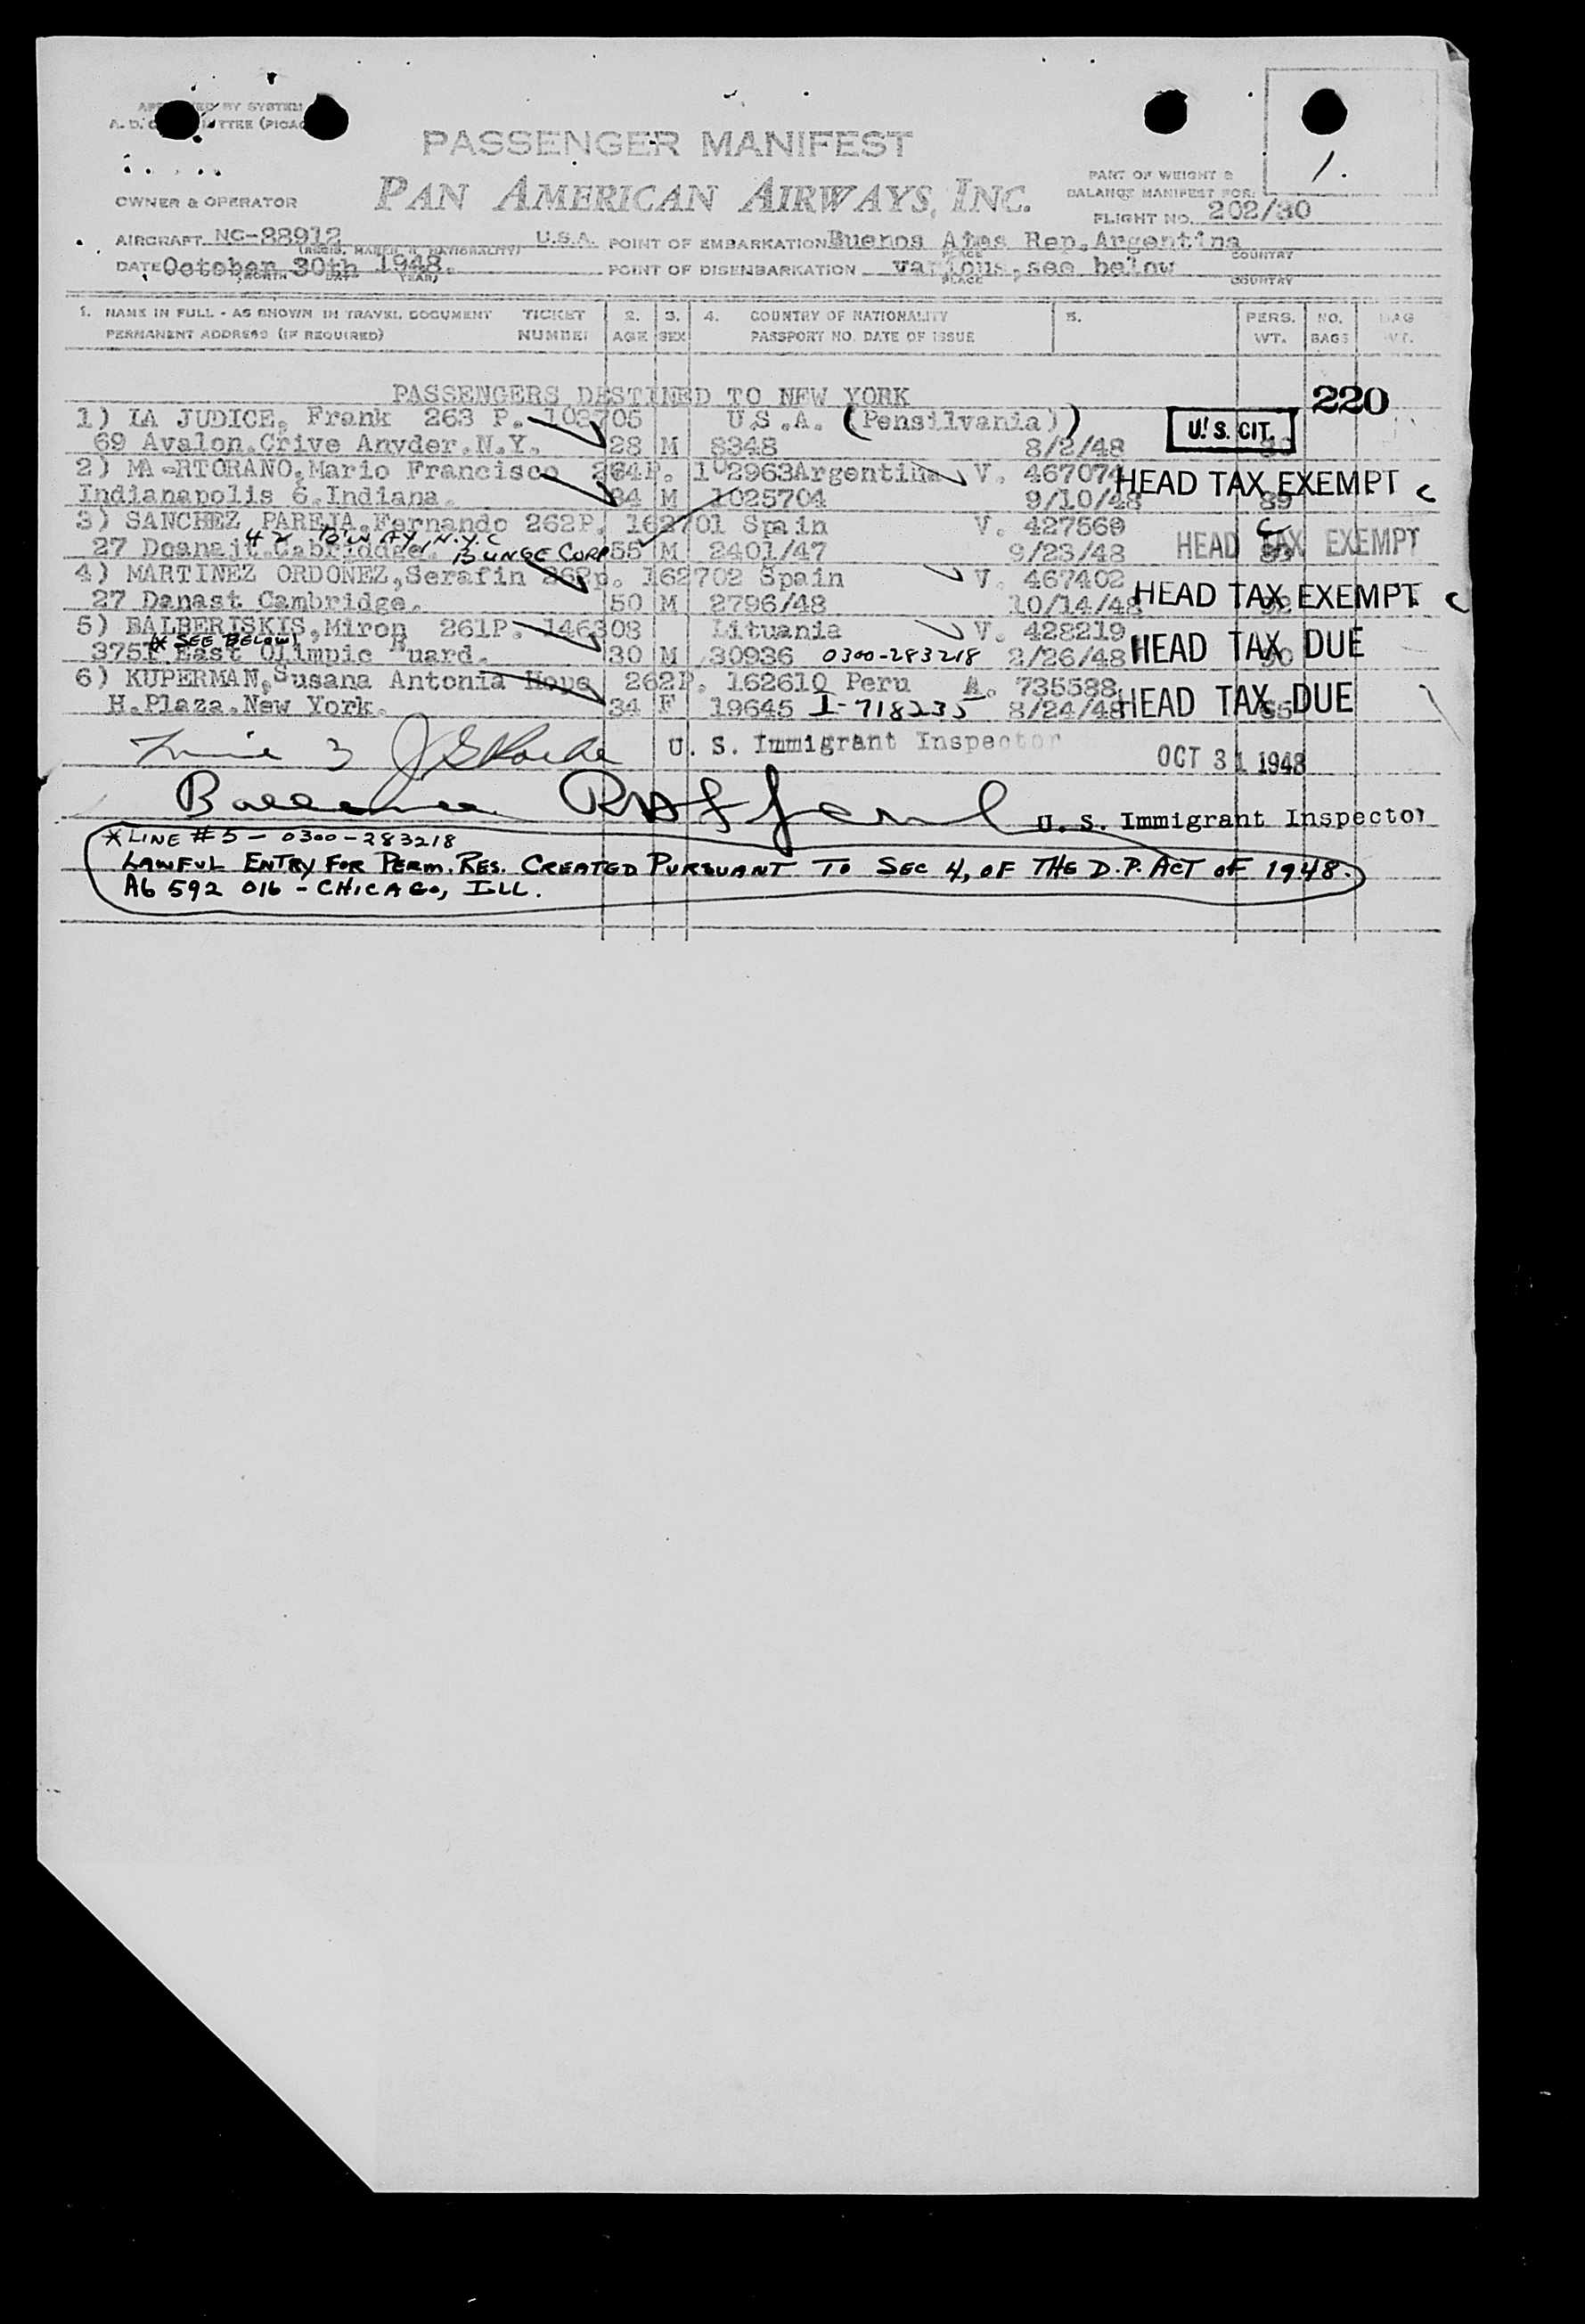 PASSENGER MANIFEST
PAN AMERICAN AIRWAYS, INC.
OWNER & OPERATOR
PART OF WEIGHT &
BALANCE MANIFEST FOR:
1.
FLIGHT NO. 202/30
AIRCRAFT NC-88912 U.S.A. POINT OF EMBARKATION Buenos Aires Rep. Argentina
PLACE COUNTRY
DATE October 30th 1948. POINT OF DISEMBARKATION various, see below
MONTH DAY YEAR PLACE COUNTRY
1. NAME IN FULL - AS SHOWN IN TRAVEL DOCUMENT TICKET 2. 3. 4. COUNTRY OF NATIONALITY 5. PERS. NO. BAG
PERMANENT ADDRESS (IF REQUIRED) NUMBER AGE SEX PASSPORT NO. DATE OF ISSUE WT. BAGS WT.
PASSENGERS DESTINED TO NEW YORK 220
1) LA JUDICE, Frank 263 P. 103705 U.S.A. (Pensilvania)
69 Avalon.Crive Anyder.N.Y. 28 M 8348 8/2/48 U.S. CIT.
2) MA-RTORANO, Mario Francisco 264P. 102963 Argentina V. 467074 HEAD TAX EXEMPT c
Indianapolis 6.Indiana. 34 M 1025704 9/10/48 89
3) SANCHEZ PAREJA, Fernando 262P. 162701 Spain V. 427569
42 B'WAY, N.Y.C
27 BUNGE CORP 55 M 2401/47 9/23/48 HEAD TAX EXEMPT
4) MARTINEZ ORDONEZ, Serafin 262p. 162702 Spain V. 467402
27 Danast Cambridge. 50 M 2796/48 10/14/48 HEAD TAX EXEMPT c
5) BALBERISKIS, Miron 261P. 146308 Lituania V. 428219
(* SEE BELOW)
3751 East Olimpic Buard. 30 M 30936 0300-283218 2/26/48 HEAD TAX DUE
6) KUPERMAN, Susana Antonia Hoya 262P. 162610 Peru A. 735588
H.Plaza.New York. 34 F 19645 I-718235 8/24/48 HEAD TAX DUE
U. S. Immigrant Inspector
OCT 31 1948
U. S. Immigrant Inspector
* LINE #5 - 0300-283218
LAWFUL ENTRY FOR PERM. RES. CREATED PURSUANT TO SEC 4, OF THE D.P. ACT OF 1948.
A6 592 016 - CHICAGO, ILL.